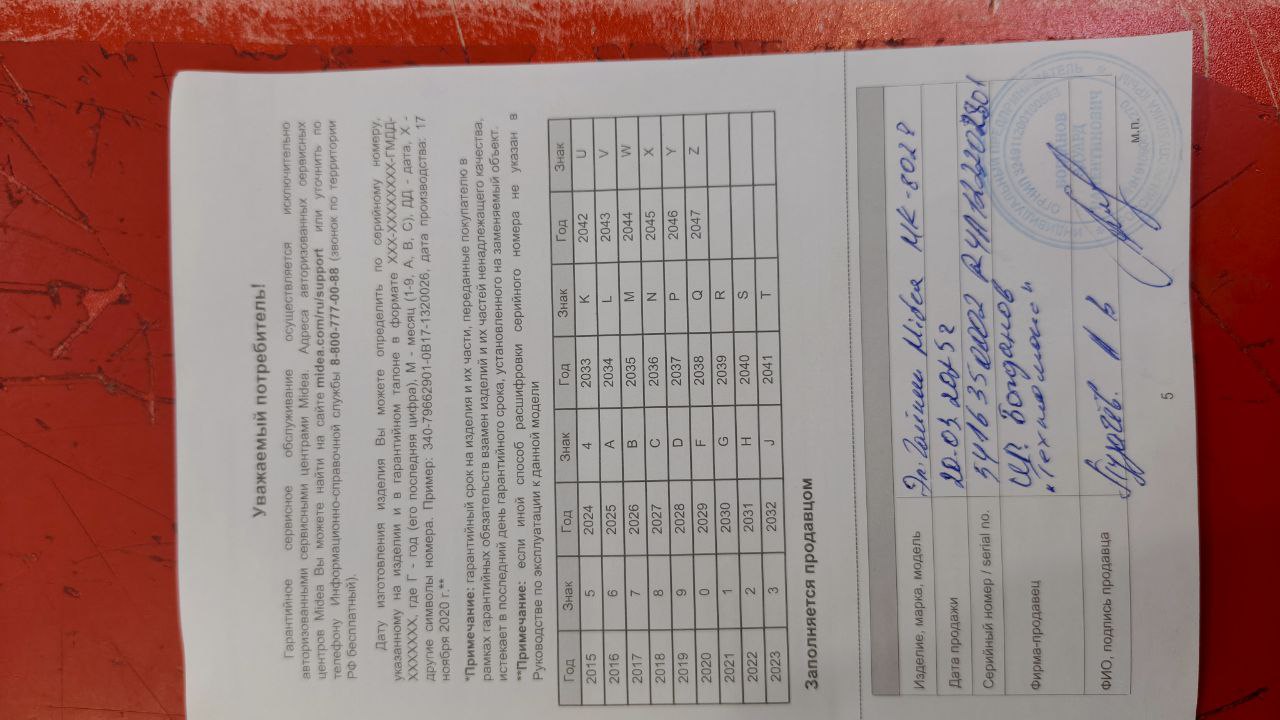 Уважаемый потребитель!
Гарантийное сервисное обслуживание осуществляется исключительно
авторизованными сервисными центрами Midea. Адреса авторизованных сервисных
центров Midea Вы можете найти на сайте midea.com/ru/support или уточнить по
телефону Информационно-справочной службы 8-800-777-00-88 (звонок по территории
РФ бесплатный).
Дату изготовления изделия Вы можете определить по серийному номеру,
указанному на изделии и в гарантийном талоне в формате XXX-XXXXXXXX-ГМДД-
XXXXXXX, где Г - год (его последняя цифра), М - месяц (1-9, A, B, C), ДД - дата, X -
другие символы номера. Пример: 340-79662901-0B17-1320026, дата производства: 17
ноября 2020 г.**
*Примечание: гарантийный срок на изделия и их части, переданные покупателю в
рамках гарантийных обязательств взамен изделий и их частей ненадлежащего качества,
истекает в последний день гарантийного срока, установленного на заменяемый объект.
**Примечание: если иной способ расшифровки серийного номера не указан в
Руководстве по эксплуатации к данной модели
Год Знак Год Знак Год Знак Год Знак
2015 5 2024 4 2033 K 2042 U
2016 6 2025 A 2034 L 2043 V
2017 7 2026 B 2035 M 2044 W
2018 8 2027 C 2036 N 2045 X
2019 9 2028 D 2037 P 2046 Y
2020 0 2029 F 2038 Q 2047 Z
2021 1 2030 G 2039 R
2022 2 2031 H 2040 S
2023 3 2032 J 2041 T
Заполняется продавцом
Изделие, марка, модель Эл. Чайник Midea MK-8028
Дата продажи 20.03.2025 г
Серийный номер / serial no.
Фирма-продавец
"Техномакс"
ФИО, подпись продавца
м.п.
5